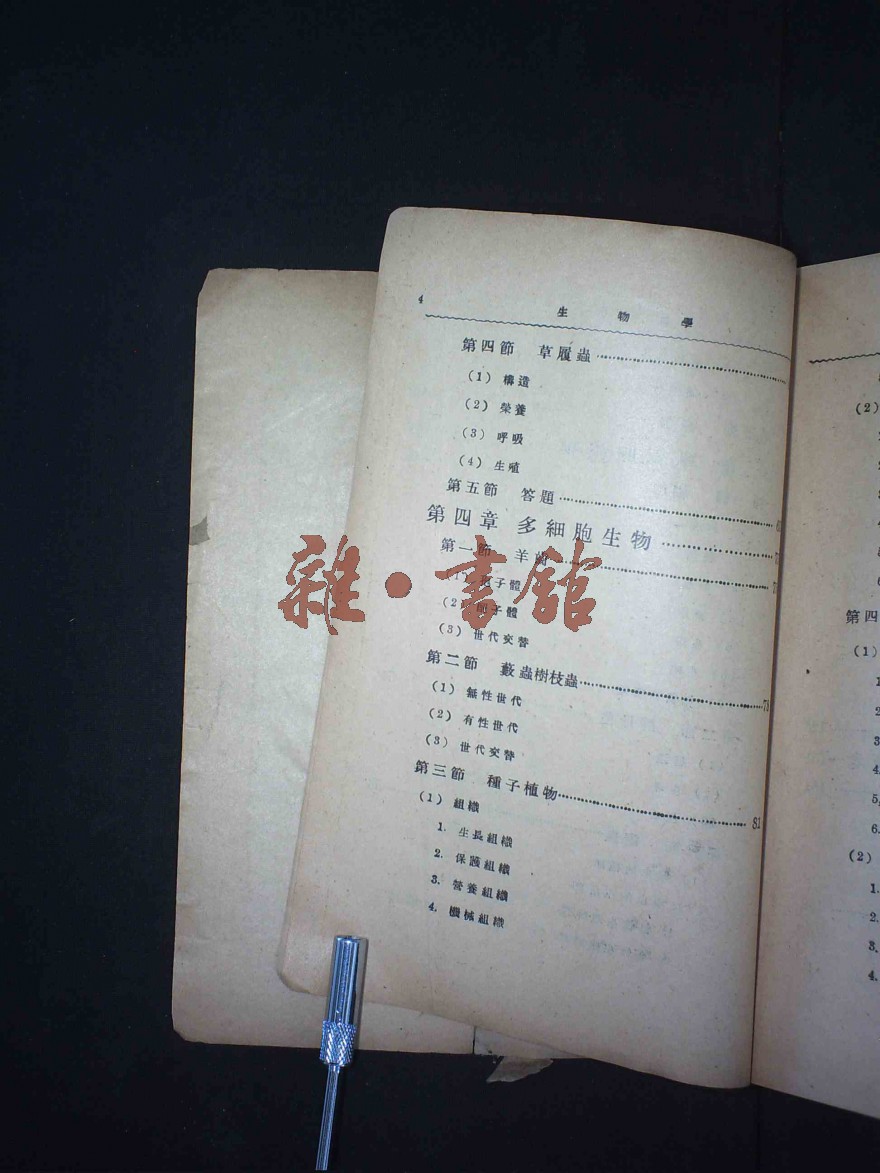 4
生物學
第四節 草履蟲
(1) 構造
(2) 榮養
(3) 呼吸
(4) 生殖
第五節 答題
第四章 多細胞生物
第一節 羊齒
子體
(2) 子體
(3) 世代交替
第二節 藪蟲樹枝蟲
(1) 無性世代
(2) 有性世代
(3) 世代交替
第三節 種子植物 81
(1) 組織
1. 生長組織
2. 保護組織
3. 營養組織
4. 機械組織
雜·書館
(2)
第四
(1)
1
2
3
4.
5.
6.
(2)
1.
2.
3.
4.